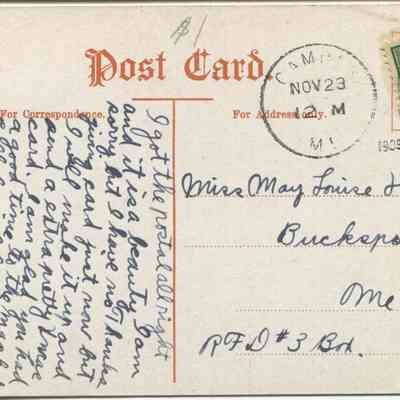 $1
Post Card.
For Correspondence.
For Address only.
CAM
NOV 23
12 M
M
1909
I got the postal all right
and it is a beauty I am
sorry but I have no Thanks
giving card just now but
I will make it up and
and a extra pretty Xmas
card. I am glad you had
a good time to the
Miss May Louise H
Buckspo
Me
RFD #3 Box.